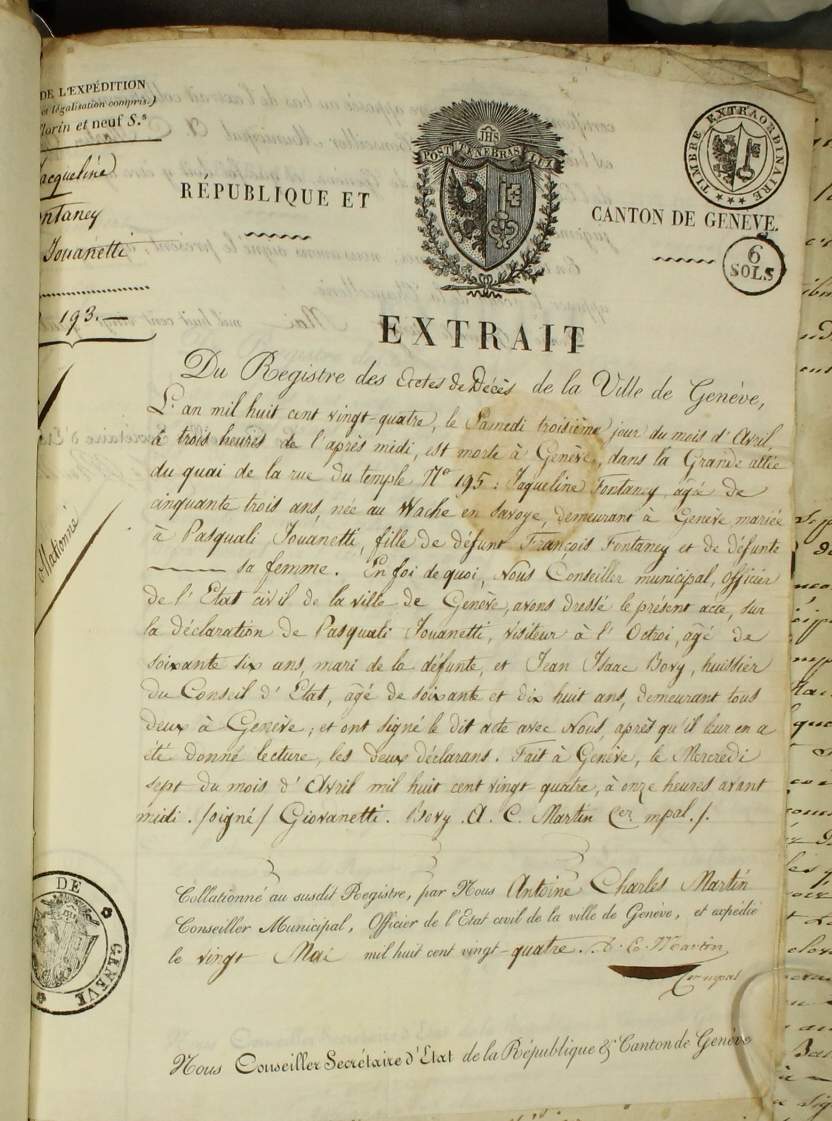 DE L'EXPÉDITION
et légalisation compris.)
florin et neuf S.s
Jacqueline
Fontaney
Jouanetti
193.—
Collationné
JHS
POST TENEBRIS LUX
RÉPUBLIQUE ET
CANTON DE GENÈVE.
TIMBRE EXTRAORDINAIRE
6
SOLS
EXTRAIT
Du Registre des Actes de Décès de la Ville de Genève,
L'an mil huit cent vingt-quatre, le Samedi troisième jour du mois d'Avril
à trois heures de l'après midi, est morte à Genève, dans la Grande allée
du quai de la rue du temple No 195: Jaqueline Fontaney, agée de
cinquante trois ans, née au Wache en Savoye, demeurant à Genève mariée
à Pasquali Jouanetti, fille de défunt François Fontaney et de défunte
——— sa femme. En foi de quoi, Nous Conseiller municipal, Officier
de l'Etat civil de la ville de Genève, avons dressé le présent acte, sur
la déclaration de Pasquali Jouanetti, visiteur à l'Octroi, âgé de
soixante six ans, mari de la défunte, et Jean Isaac Bovy, huissier
du Conseil d'Etat, âgé de soixante et dix huit ans, demeurant tous
deux à Genève; et ont signé le dit acte avec Nous, après qu'il leur en a
été donné lecture, les deux déclarans. Fait à Genève, le Mercredi
sept du mois d'Avril mil huit cent vingt quatre, à onze heures avant
midi. /signé/ Giovanetti. Bovy. A. C. Martin Cer mpal./.
Collationné au susdit Registre, par Nous Antoine Charles Martin
Conseiller Municipal, Officier de l'Etat civil de la ville de Genève, et expédié
le vingt Mai mil huit cent vingt-quatre. A. C. Martin
Cer mpal
DE GENÈVE
Nous Conseiller Secrétaire d'Etat de la République & Canton de Genève